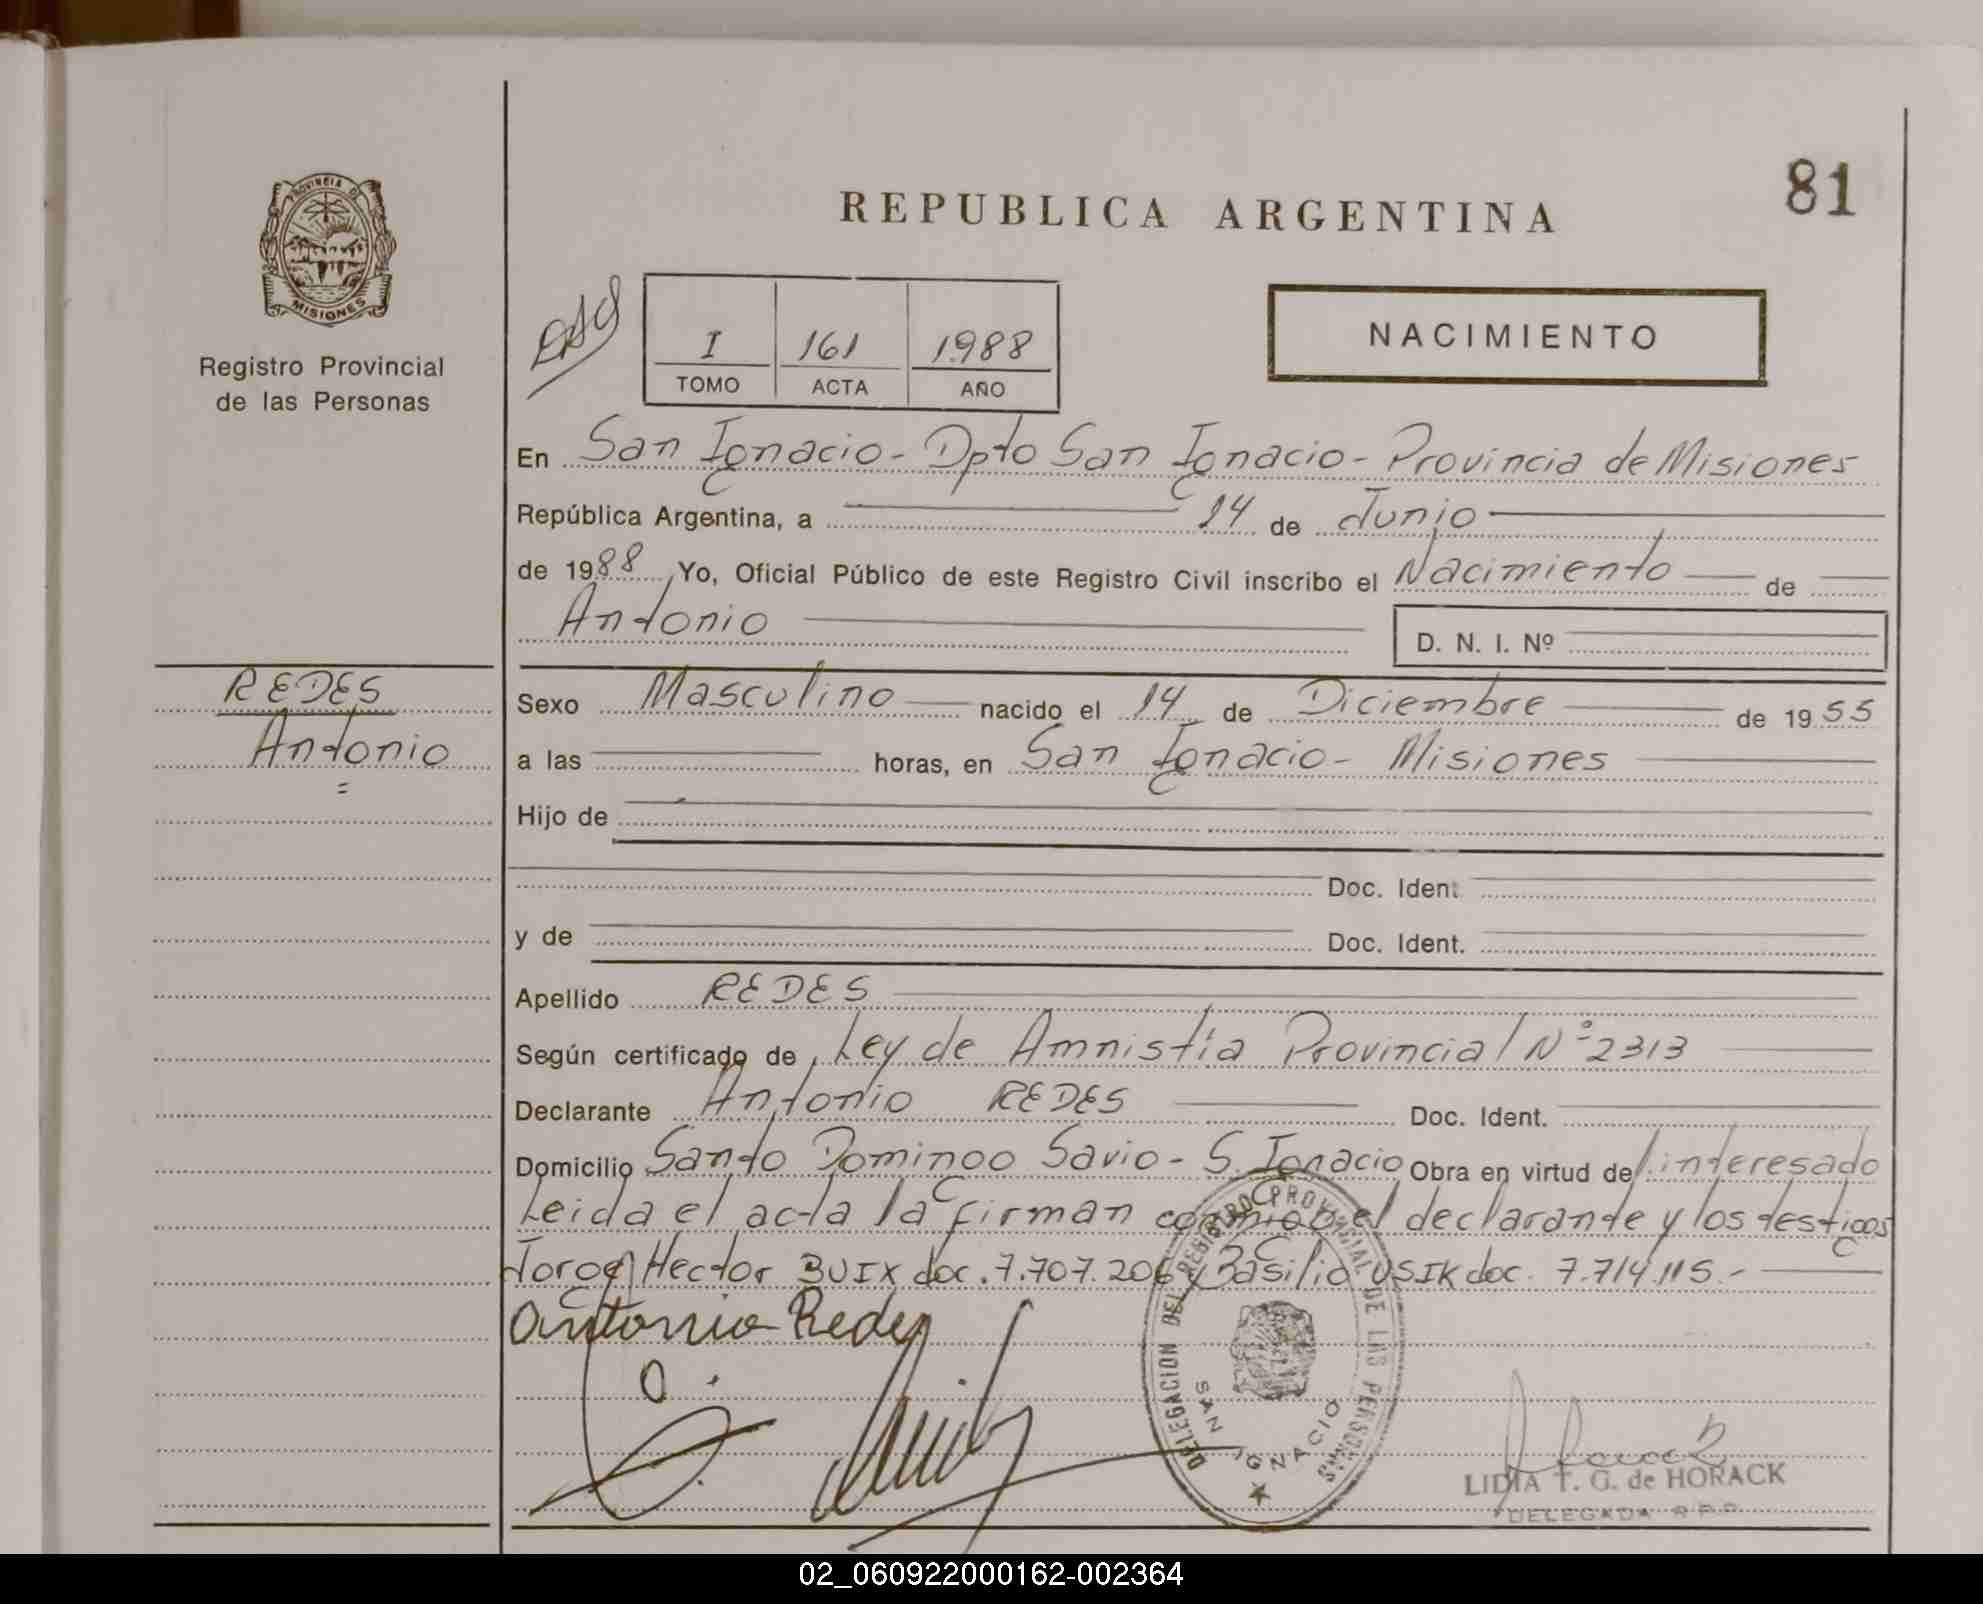 81
REPUBLICA ARGENTINA
PROVINCIA DE
MISIONES
Registro Provincial
de las Personas
I 161 1988
TOMO ACTA AÑO
NACIMIENTO
En San Ignacio - Dpto San Ignacio - Provincia de Misiones
República Argentina, a 14 de Junio
de 1988 Yo, Oficial Público de este Registro Civil inscribo el Nacimiento de
Antonio
D. N. I. Nº
REDES
Antonio
Sexo Masculino nacido el 14 de Diciembre de 1955
a las horas, en San Ignacio - Misiones
Hijo de
Doc. Ident
y de Doc. Ident.
Apellido REDES
Según certificado de Ley de Amnistía Provincial Nº 2313
Declarante Antonio REDES Doc. Ident.
Domicilio Santo Domingo Savio - S. Ignacio Obra en virtud de/ interesado
Leida el acta la firman conmigo el declarante y los testigos
Jorge Hector BUIX doc. 7.707.206 y Basilio USIK doc. 7.714.115.-
Antonio Redes
DELEGACION DEL REGISTRO PROVINCIAL DE LAS PERSONAS
SAN IGNACIO
LIDIA T. G. de HORACK
DELEGADA R.P.P.
02_060922000162-002364